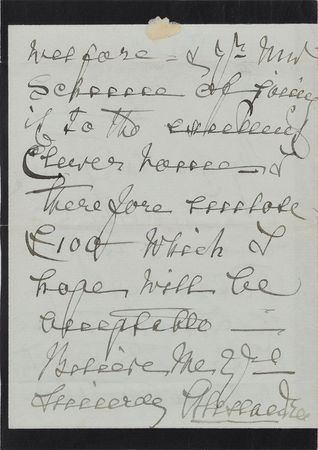 welfare - & yr. new
Scheeme of joining
it to the excellent
Clewer house - I
therefore enclose
£100 which I
hope will be
acceptable —
Believe me yrs
sincerely Alexandra